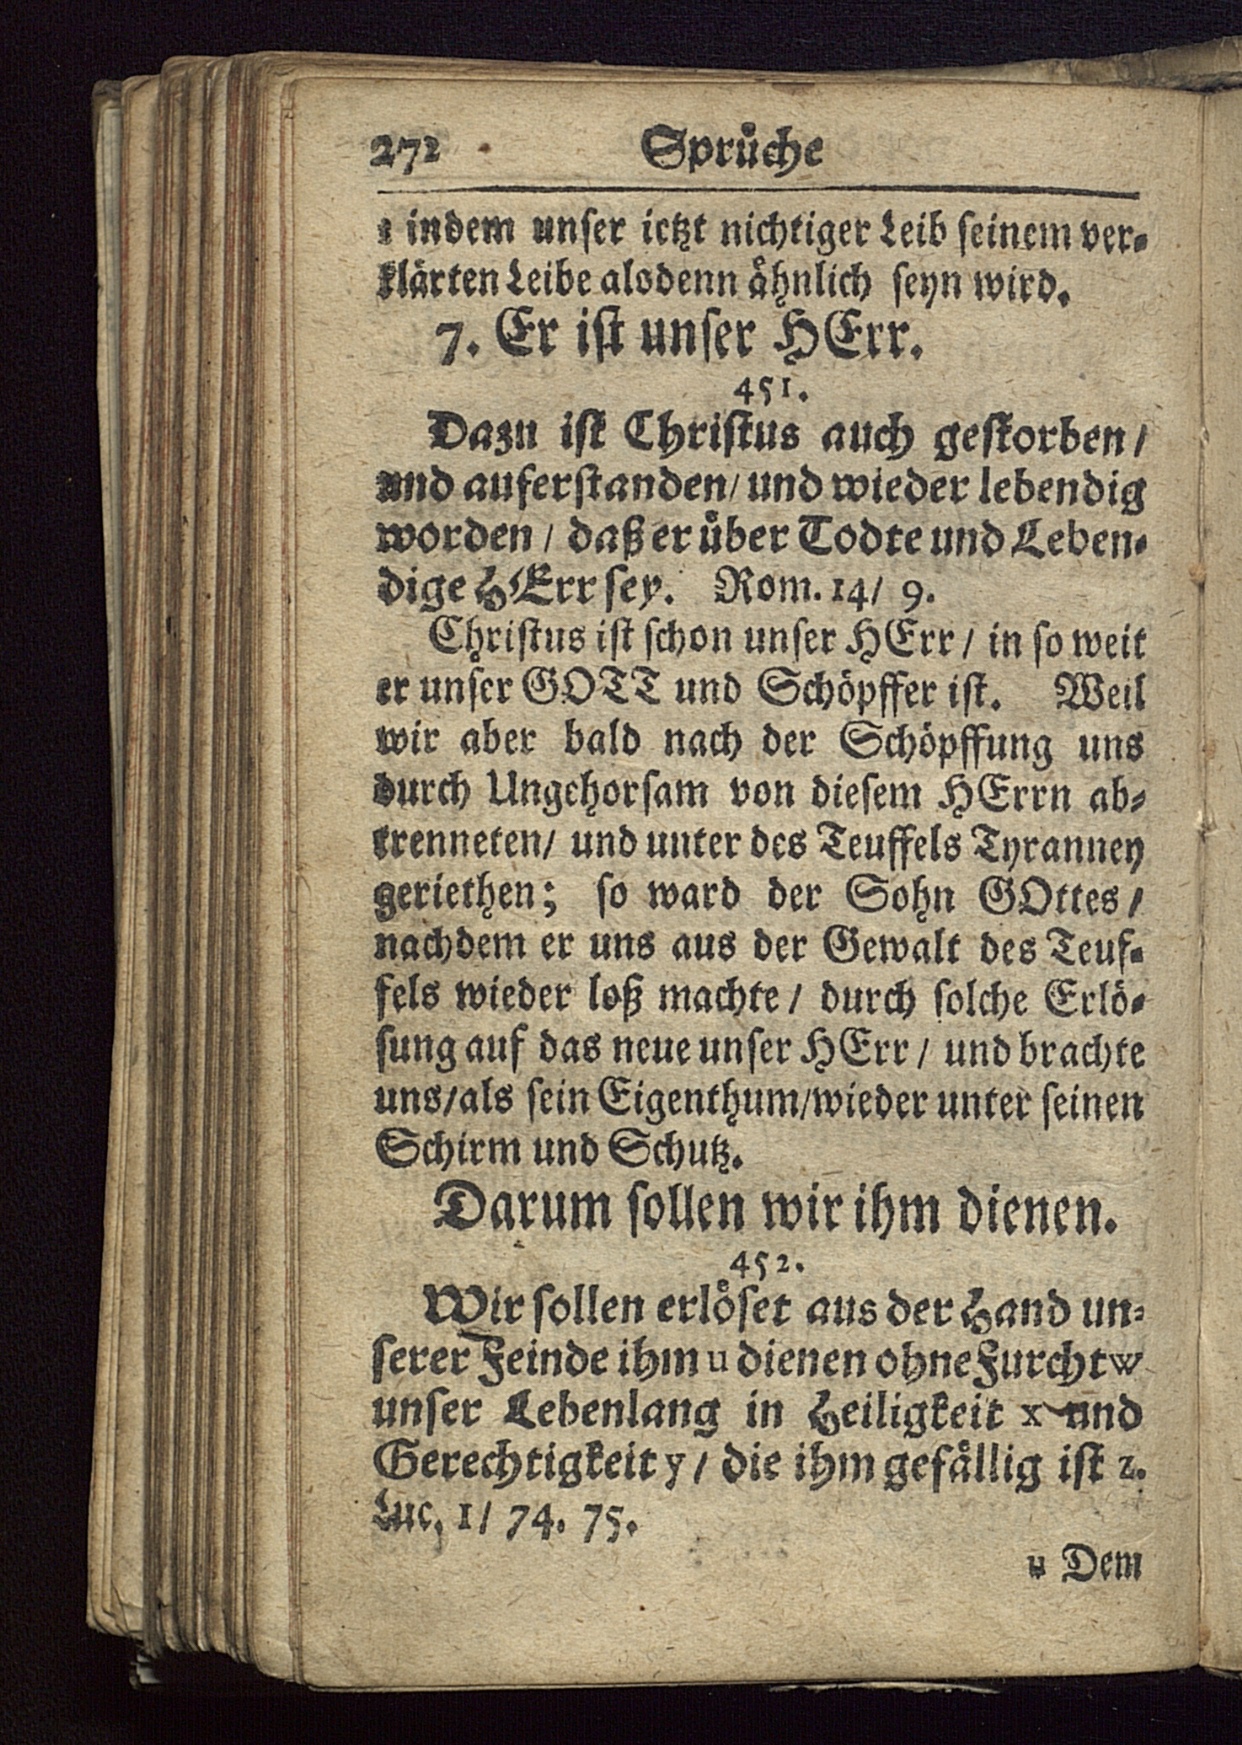 272 Spruͤche
t indem unſer ietzt nichtiger Leib ſeinem ver⸗
klaͤrten Leibe alsdenn aͤhnlich ſeyn wird.
7. Er iſt unſer HErr.
451.
Dazu iſt Chriſtus auch geſtorben /
und auferſtanden / und wieder lebendig
worden / daß er uͤber Todte und Leben⸗
dige HErr ſey. Rom. 14 / 9.
Chriſtus iſt ſchon unſer HErr / in ſo weit
er unſer GOTT und Schöpffer iſt. Weil
wir aber bald nach der Schöpffung uns
durch Ungehorſam von dieſem HErrn ab⸗
trenneten / und unter des Teuffels Tyranney
geriethen; ſo ward der Sohn GOttes /
nachdem er uns aus der Gewalt des Teuf⸗
fels wieder loß machte / durch ſolche Erlö⸗
ſung auf das neue unſer HErr / und brachte
uns / als ſein Eigenthum / wieder unter ſeinen
Schirm und Schutz.
Darum ſollen wir ihm dienen.
452.
Wir ſollen erloͤſet aus der Hand un⸗
ſerer Feinde ihm u dienen ohne Furcht w
unſer Lebenlang in Heiligkeit x und
Gerechtigkeit y / die ihm gefaͤllig iſt z.
Luc. 1 / 74. 75.
u Dem